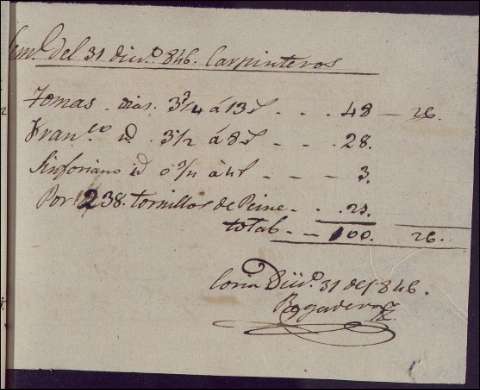 Sem.ª del 31 dic.º 846. Carpinteros
Tomas dias. 3 3/4 á 13 r - - . 48 - 26.
Fran.co id 3 1/2 á 8 r - - - 28.
Sinforiano id 0 3/4 á 4 r - - - 3.
Por 238. tornillos de Peine - . 21.
total - - 100. 26.
Coria Dic.º 31 de 1846.